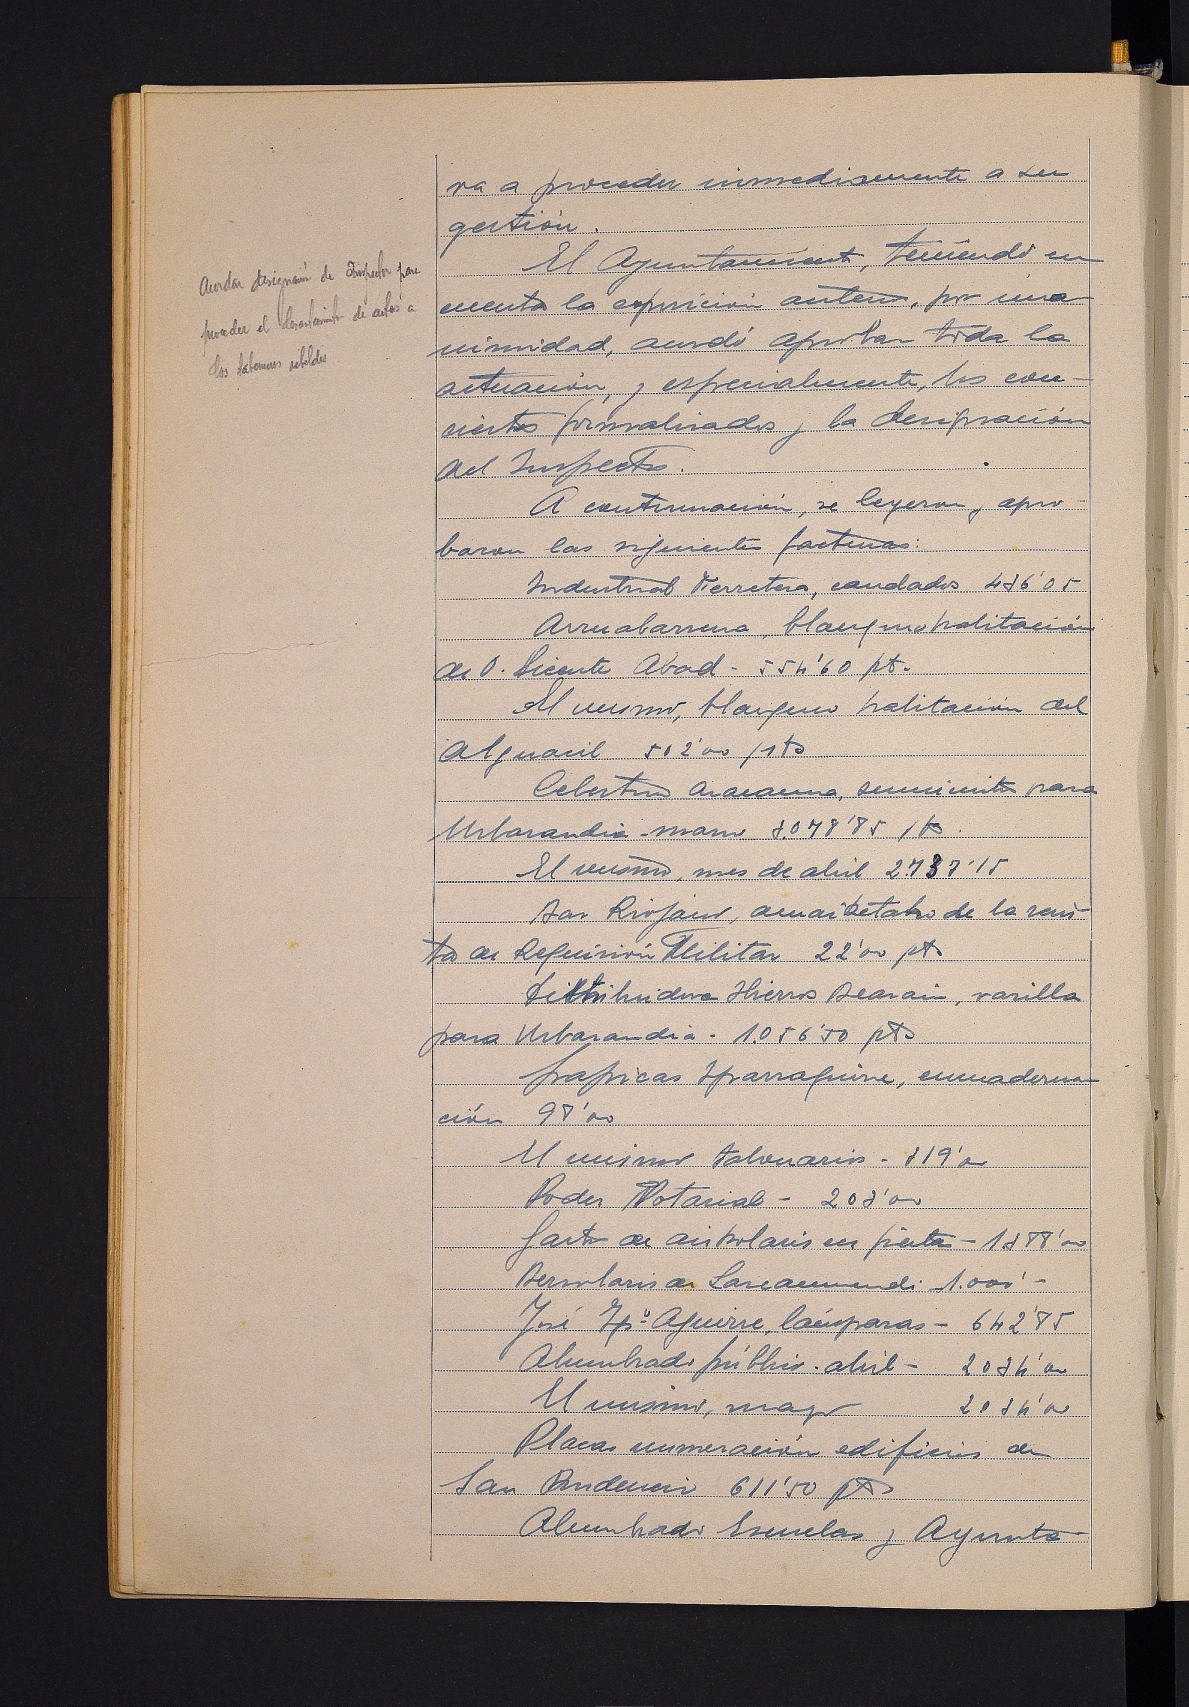 Acordar designación de Inspector para
proceder el levantamiento de actas a
los taberneros rebeldes
ra a proceder inmediamente a su
gestión.
El Ayuntamiento, teniendo en
cuenta la exposición anterior, por una-
nimidad, acordó aprobar toda la
actuación, y especialmente, los con-
ciertos formalizados y la designación
del Inspector.
A continuación, se leyeron y apro-
baron las siguientes facturas:
Industrial Ferretera, candados 436'05
Arruabarrena, blanqueo habitación
de D. Vicente Abad - 554'60 pts.
El mismo, blanqueo habitación del
Alguacil 502'00 pts
Celestino suministro para
Urbarandia - marzo 3.078'85 pts.
El mismo, mes de abril 2.737'15
Bar Riojano, de la
de Requisición Militar 22'00 pts
Distribuidora Hierros Beasain, varilla
para Urbarandia - 1.056'50 pts
Gráficas Yparraguirre, encuaderna
ción 98'00
El mismo talonarios - 319'00
Poder Notarial - 203'00
Gasto de en fiesta - 1388'00
Bersolaris de Lazcaomendi 1.000' -
José Ygº Aguirre, lámparas - 642'85
Alumbrado público - abril - 2034'00
El mismo, mayo 2034'00
Placas numeración edificios de
San Prudencio 611'50 pts
Alumbrado Escuelas y Ayunta-